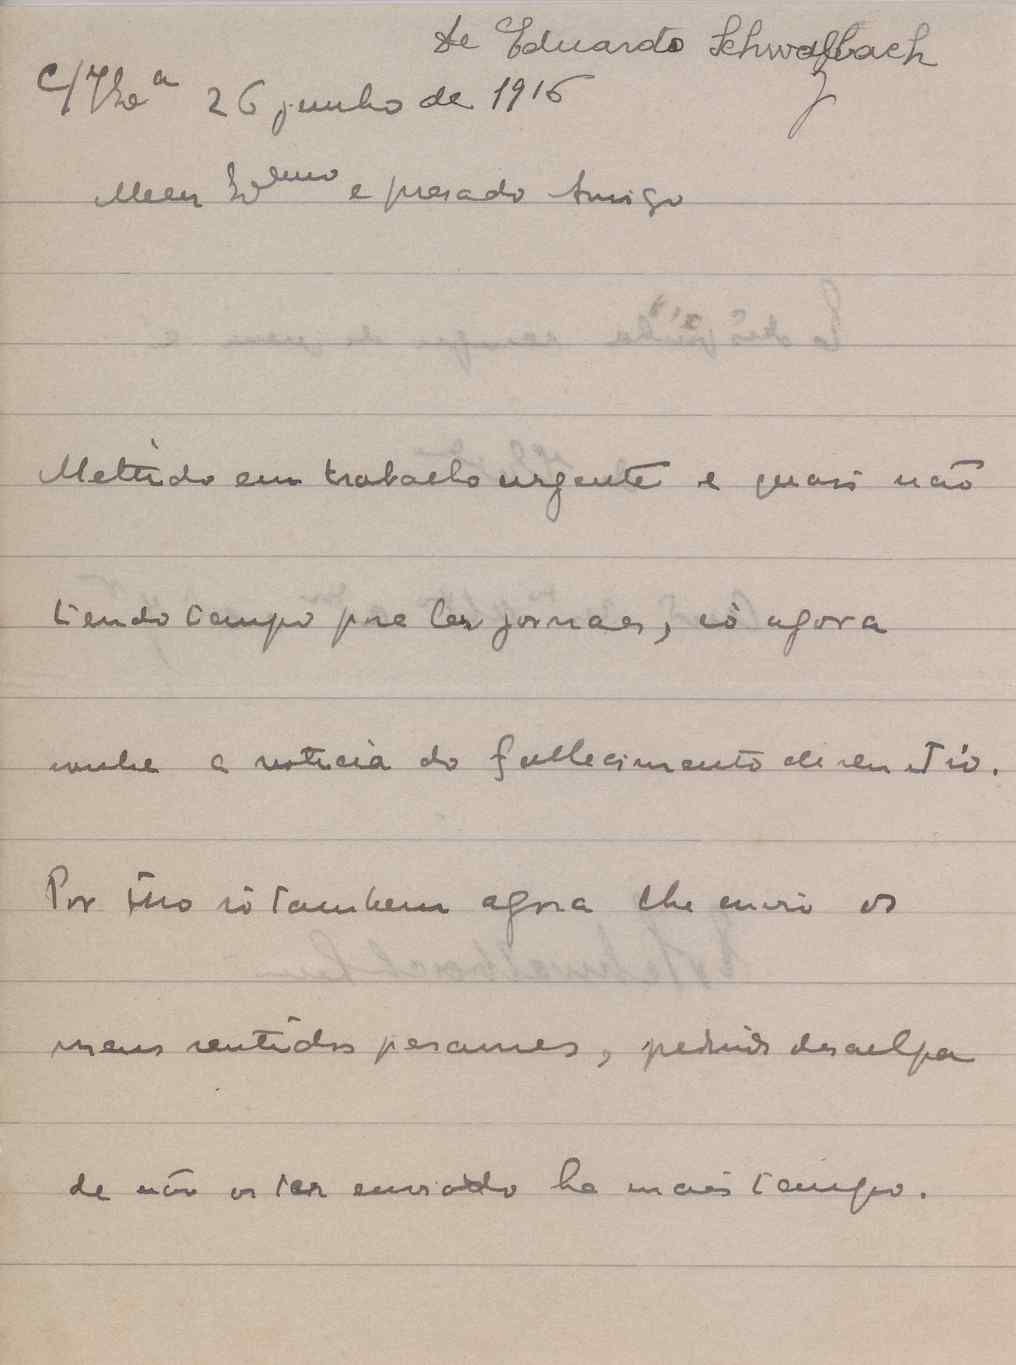 de Eduardo Schwalbach
26 junho de 1916
Meu Exmo e presado Amigo
Mettido em trabalho urgente e quasi não
tendo tempo pra ler jornaes, só agora
soube a noticia do fallecimento de seu Tio.
Por isso só tambem agora lhe envio os
meus sentidos pesames, pedindo desculpa
de não os ter enviado ha mais tempo.